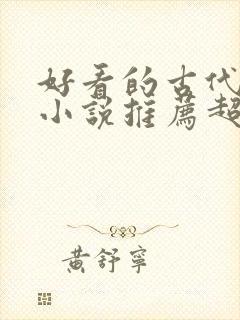 好看的古代
小説推薦超
黃舒寧